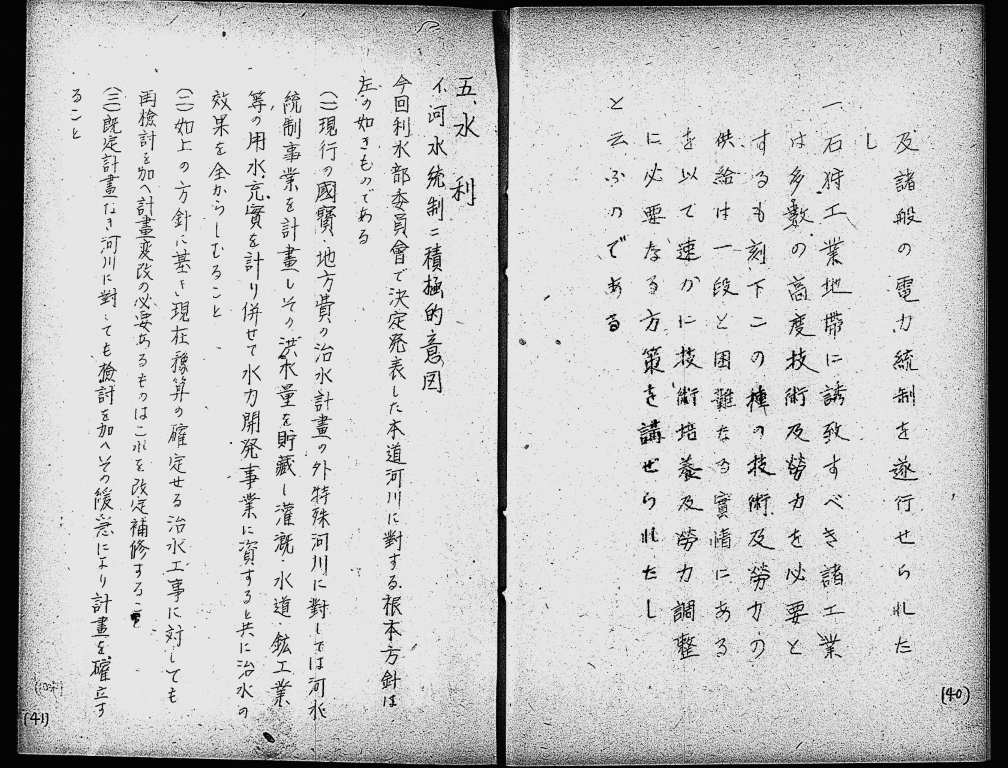 及諸般の電力統制を遂行せられた
し
一、石狩工業地帶に誘致すべき諸工業
は多數の高度技術及勞力を必要と
するも刻下この種の技術及勞力の
供給は一段と困難なる實情にある
を以て速かに技術培養及勞力調整
に必要なる方策を講ぜられたし
と云ふのである
(40)
五、水利
イ、河水統制ニ積極的意図
今回利水部委員會で決定発表した本道河川に對する根本方針は
左の如きものである
(一)現行の國費、地方費の治水計畫の外特殊河川に對しては河水
統制事業を計畫しその洪水量を貯藏し灌漑・水道・鉱工業
等の用水充實を計り併せて水力開発事業に資すると共に治水の
效果を全からしむること
(二)如上の方針に基き現在豫算の確定せる治水工事に対しても
再檢討を加へ計畫変改の必要あるものはこれを改定補修すること
(三)既定計畫なき河川に對しても檢討を加へその緩急により計畫を確立す
ること
(41)